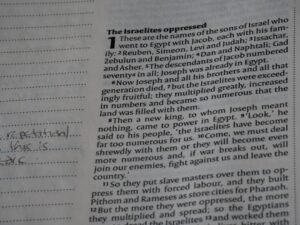 The Israelites oppressed
1 These are the names of the sons of Israel who
went to Egypt with Jacob, each with his fam-
ily: 2 Reuben, Simeon, Levi and Judah; 3 Issachar,
Zebulun and Benjamin; 4 Dan and Naphtali; Gad
and Asher. 5 The descendants of Jacob numbered
seventy in all; Joseph was already in Egypt.
6 Now Joseph and all his brothers and all that
generation died, 7 but the Israelites were exceed-
ingly fruitful; they multiplied greatly, increased
in numbers and became so numerous that the
land was filled with them.
8 Then a new king, to whom Joseph meant
nothing, came to power in Egypt. 9 'Look,' he
said to his people, 'the Israelites have become
far too numerous for us. 10 Come, we must deal
shrewdly with them or they will become even
more numerous and, if war breaks out, will
join our enemies, fight against us and leave the
country.'
11 So they put slave masters over them to op-
press them with forced labour, and they built
Pithom and Rameses as store cities for Pharaoh.
12 But the more they were oppressed, the more
they multiplied and spread; so the Egyptians
the Israelites 13 and worked them
this is